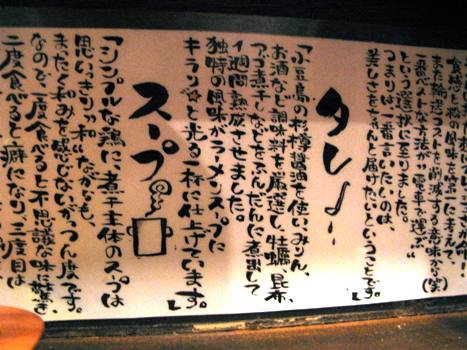 食感と粉の風味を第一に考え、
また輸送コストを削減する意味で(笑)
飛べストな方法が"電車で運ぶ"
という選択に至りました。
つまりは、一番言いたいのは、
美しさをとんと届けたいということです。
タレ
「小豆島の杉樽醤油を使い、みりん、
お酒など調味料を厳選し、牡蠣、昆布、
アゴ煮干しなどをふんだんに煮出して
1週間熟成させました。
独特の風味がラーメンスープに
キラリと光る一杯に仕上げています。」
スープ
「シンプルな鶏に、煮干主体のスープは
思いっきり"和"ながらも、
まったく和みを感じないが、つん度です。
なので一度食べると不思議な味、続きを
二度食べると癖になり、三度目は